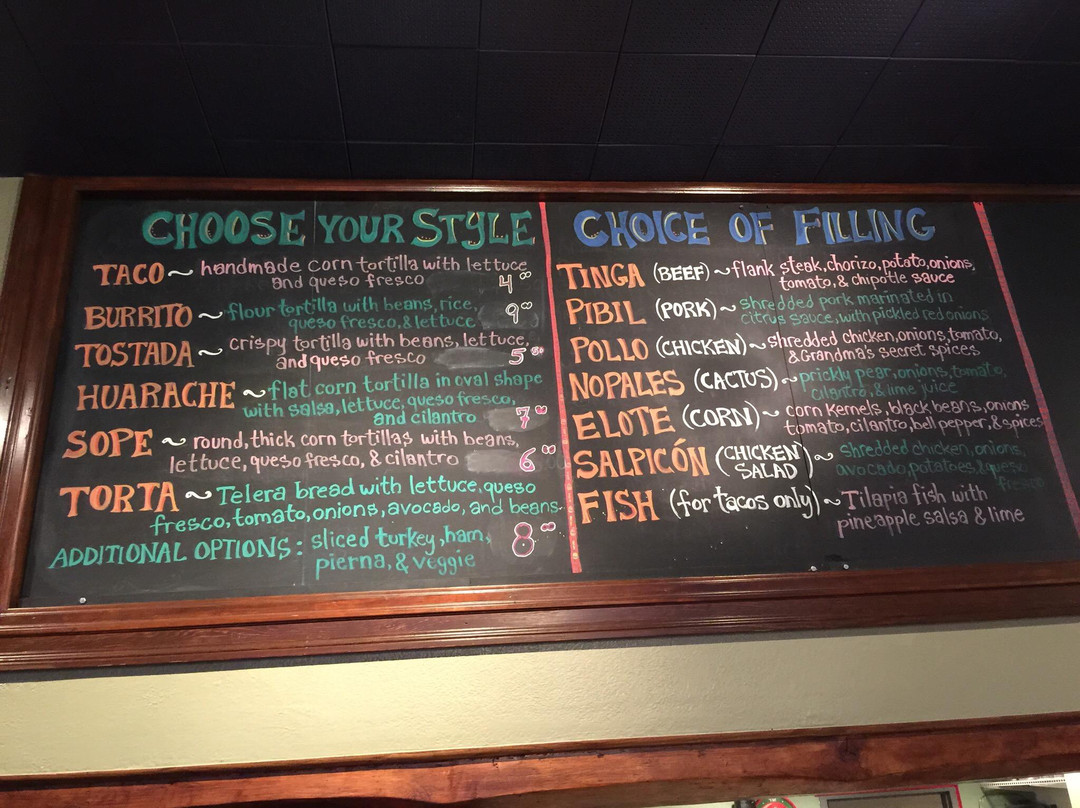 CHOOSE YOUR STYLE
TACO ~ handmade corn tortilla with lettuce
and queso fresco 4
BURRITO ~ flour tortilla with beans, rice,
queso fresco, & lettuce 9
TOSTADA ~ crispy tortilla with beans, lettuce,
and queso fresco 5
HUARACHE ~ flat corn tortilla in oval shape
with salsa, lettuce, queso fresco,
and cilantro 7
SOPE ~ round, thick corn tortillas with beans,
lettuce, queso fresco, & cilantro 6
TORTA ~ Telera bread with lettuce, queso
fresco, tomato, onions, avocado, and beans.
ADDITIONAL OPTIONS: sliced turkey, ham,
pierna, & veggie 8
CHOICE OF FILLING
TINGA (BEEF) ~ flank steak, chorizo, potato, onions,
tomato, & chipotle sauce
PIBIL (PORK) ~ shredded pork marinated in
citrus sauce, with pickled red onions
POLLO (CHICKEN) ~ shredded chicken, onions, tomato,
& Grandma's secret spices
NOPALES (CACTUS) ~ prickly pear, onions, tomato,
cilantro, & lime juice
ELOTE (CORN) ~ corn kernels, black beans, onions
tomato, cilantro, bell pepper, & spices
SALPICÓN (CHICKEN SALAD) ~ shredded chicken, onions,
avocado, potatoes, & queso
fresco
FISH (for tacos only) ~ Tilapia fish with
pineapple salsa & lime